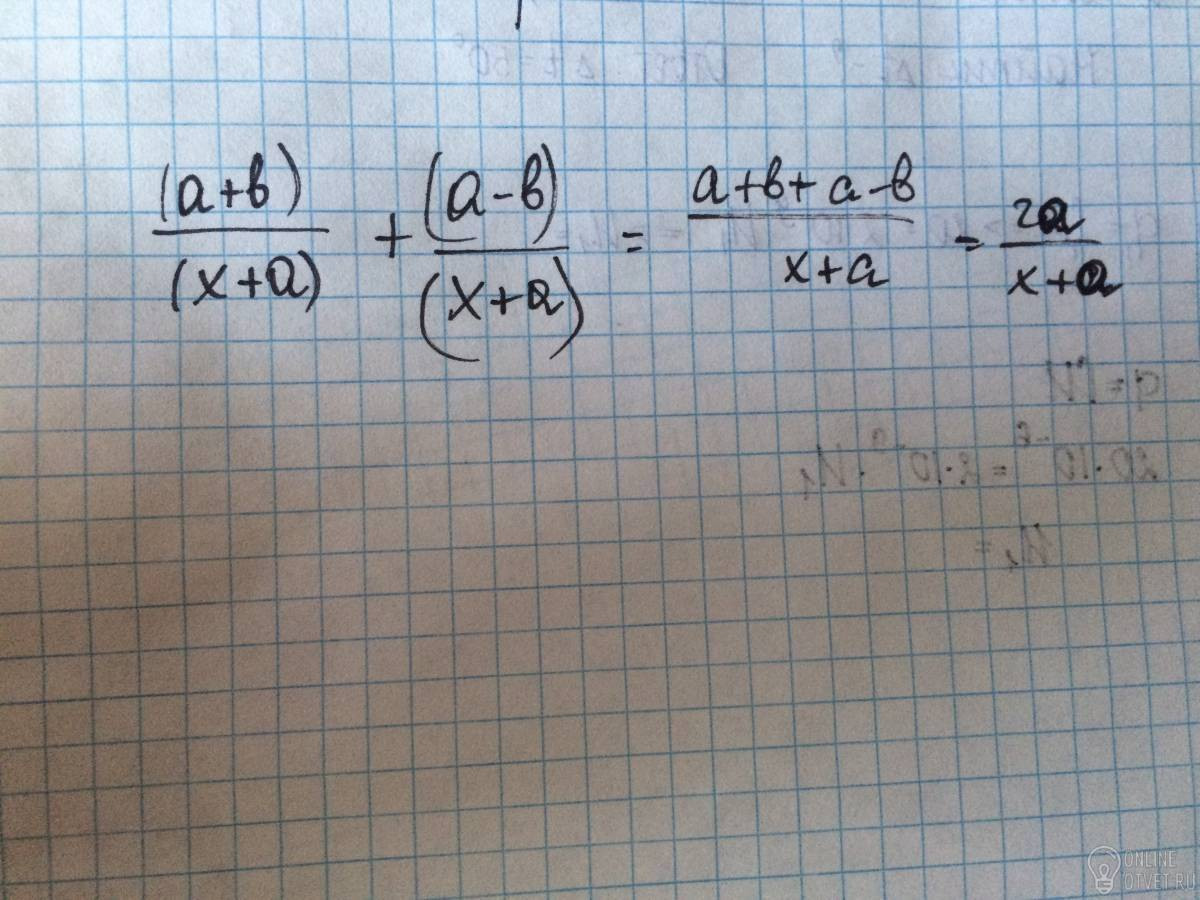 (a+b)/(x+a) + (a-b)/(x+a) = a+b+a-b/x+a = 2a/x+a
ONLINE
OTVET.RU